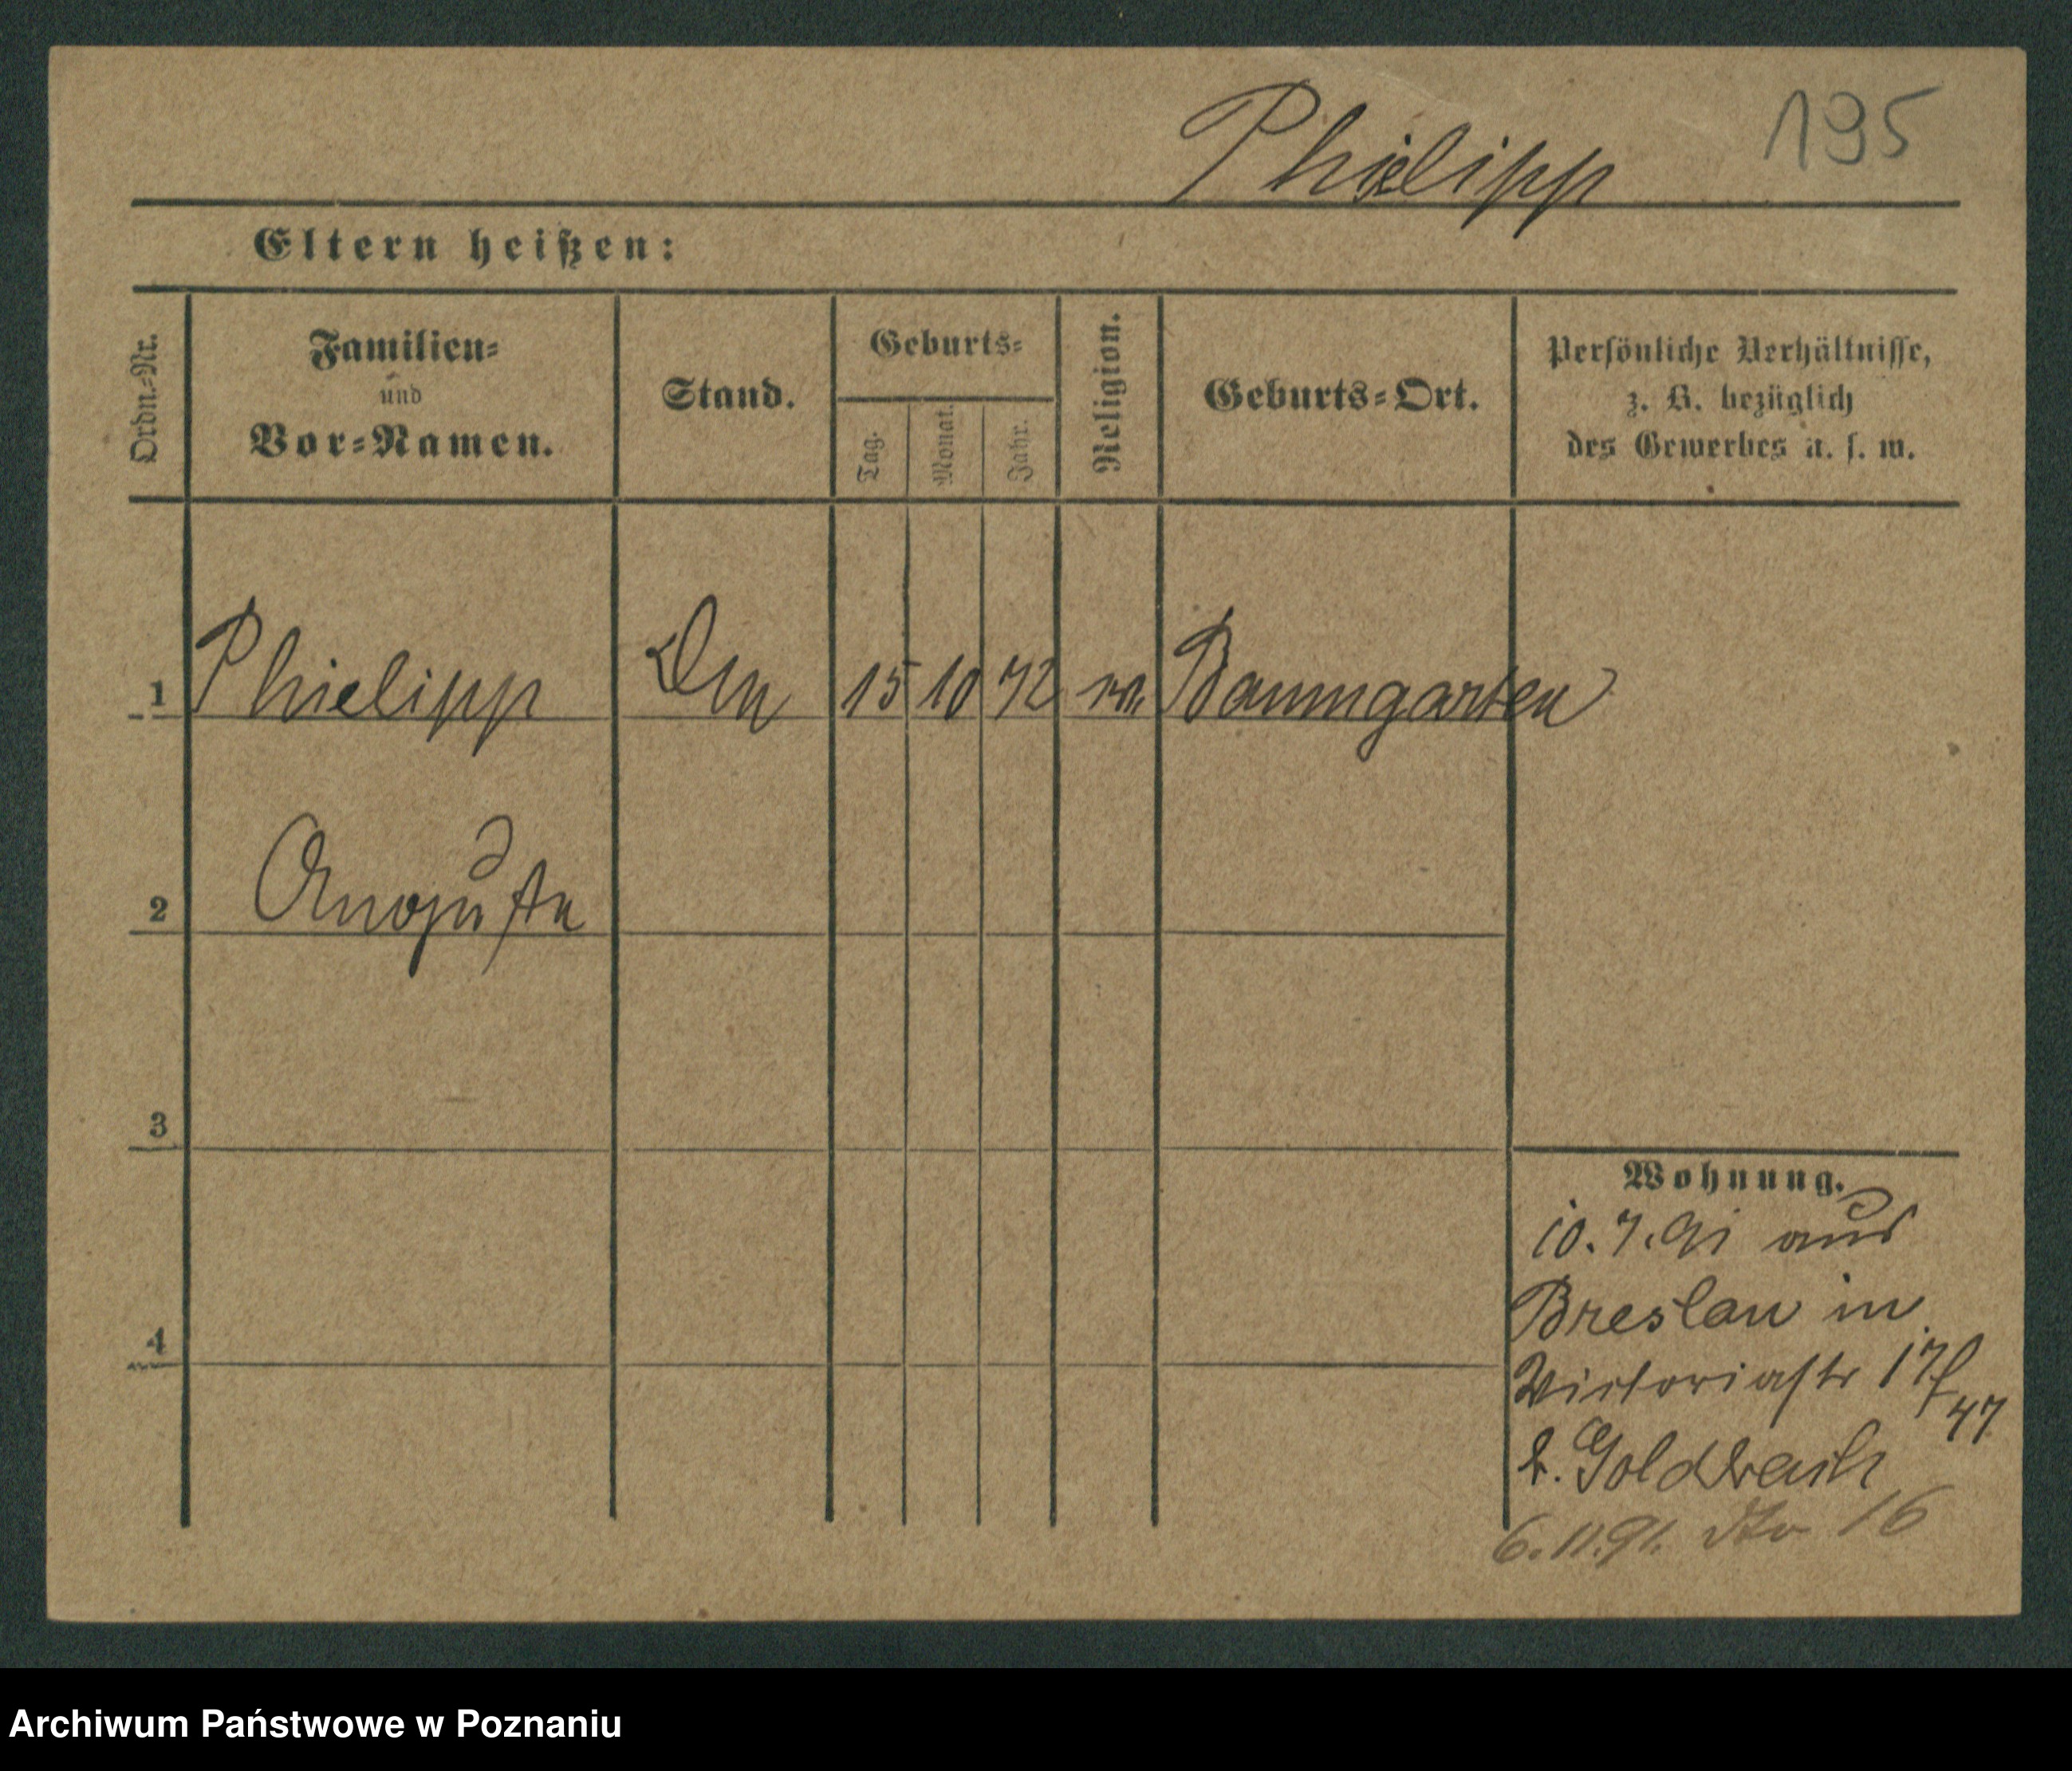 195
Phielipp
Eltern heißen:
Ordn.-Nr.
Familien-
und
Vor-Namen.
Stand.
Geburts-
Tag.
Monat.
Jahr.
Religion.
Geburts-Ort.
Persönliche Verhältnisse,
z. B. bezüglich
des Gewerbes u. s. w.
1 Phielipp 15 10 72 Baumgarten
2 Auguste
3
4
Wohnung.
10.7.91 aus
Breslau in
Victoriastr 17/47
b. Goldbach
6.11.91. dto 16
Archiwum Państwowe w Poznaniu